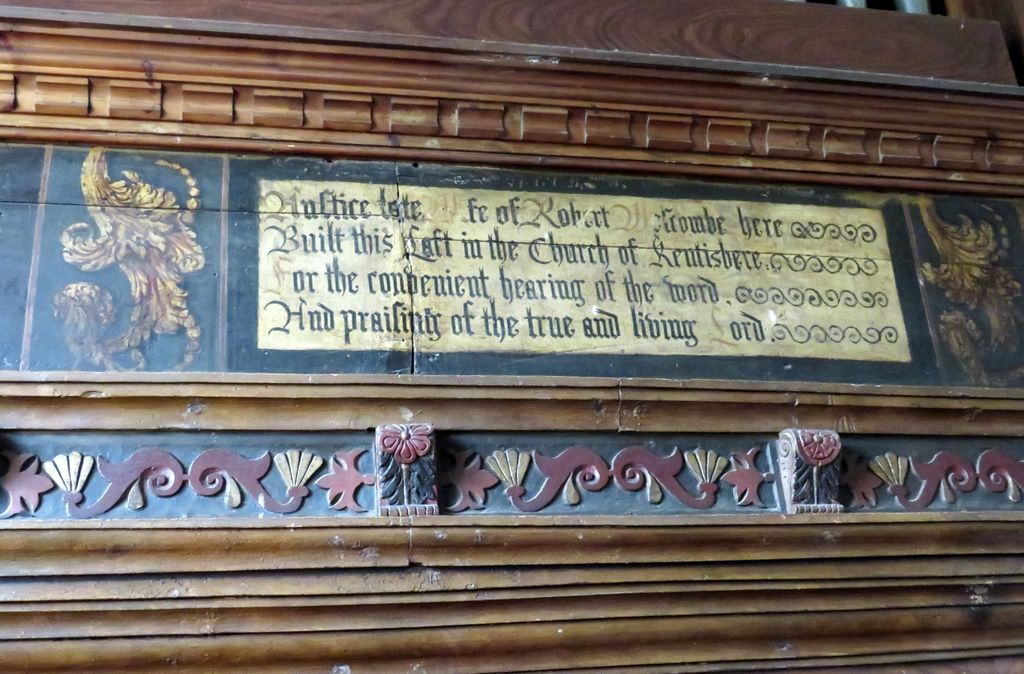 Anstice late Wife of Robert Wescombe here
Built this Loft in the Church of Kentisbere
For the convenient hearing of the word
And praising of the true and living Lord